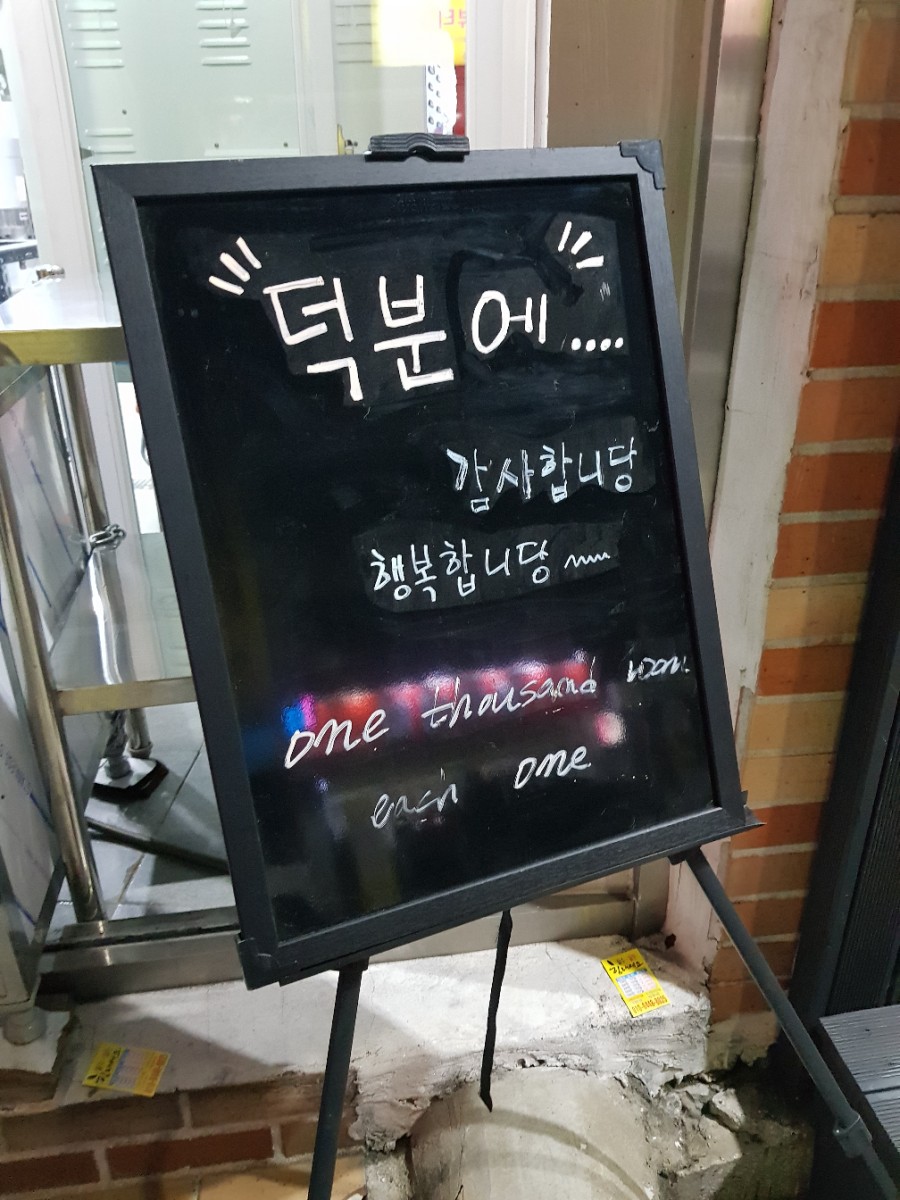 덕분에....
감사합니당
행복합니당 ~~
one thousand won
each one